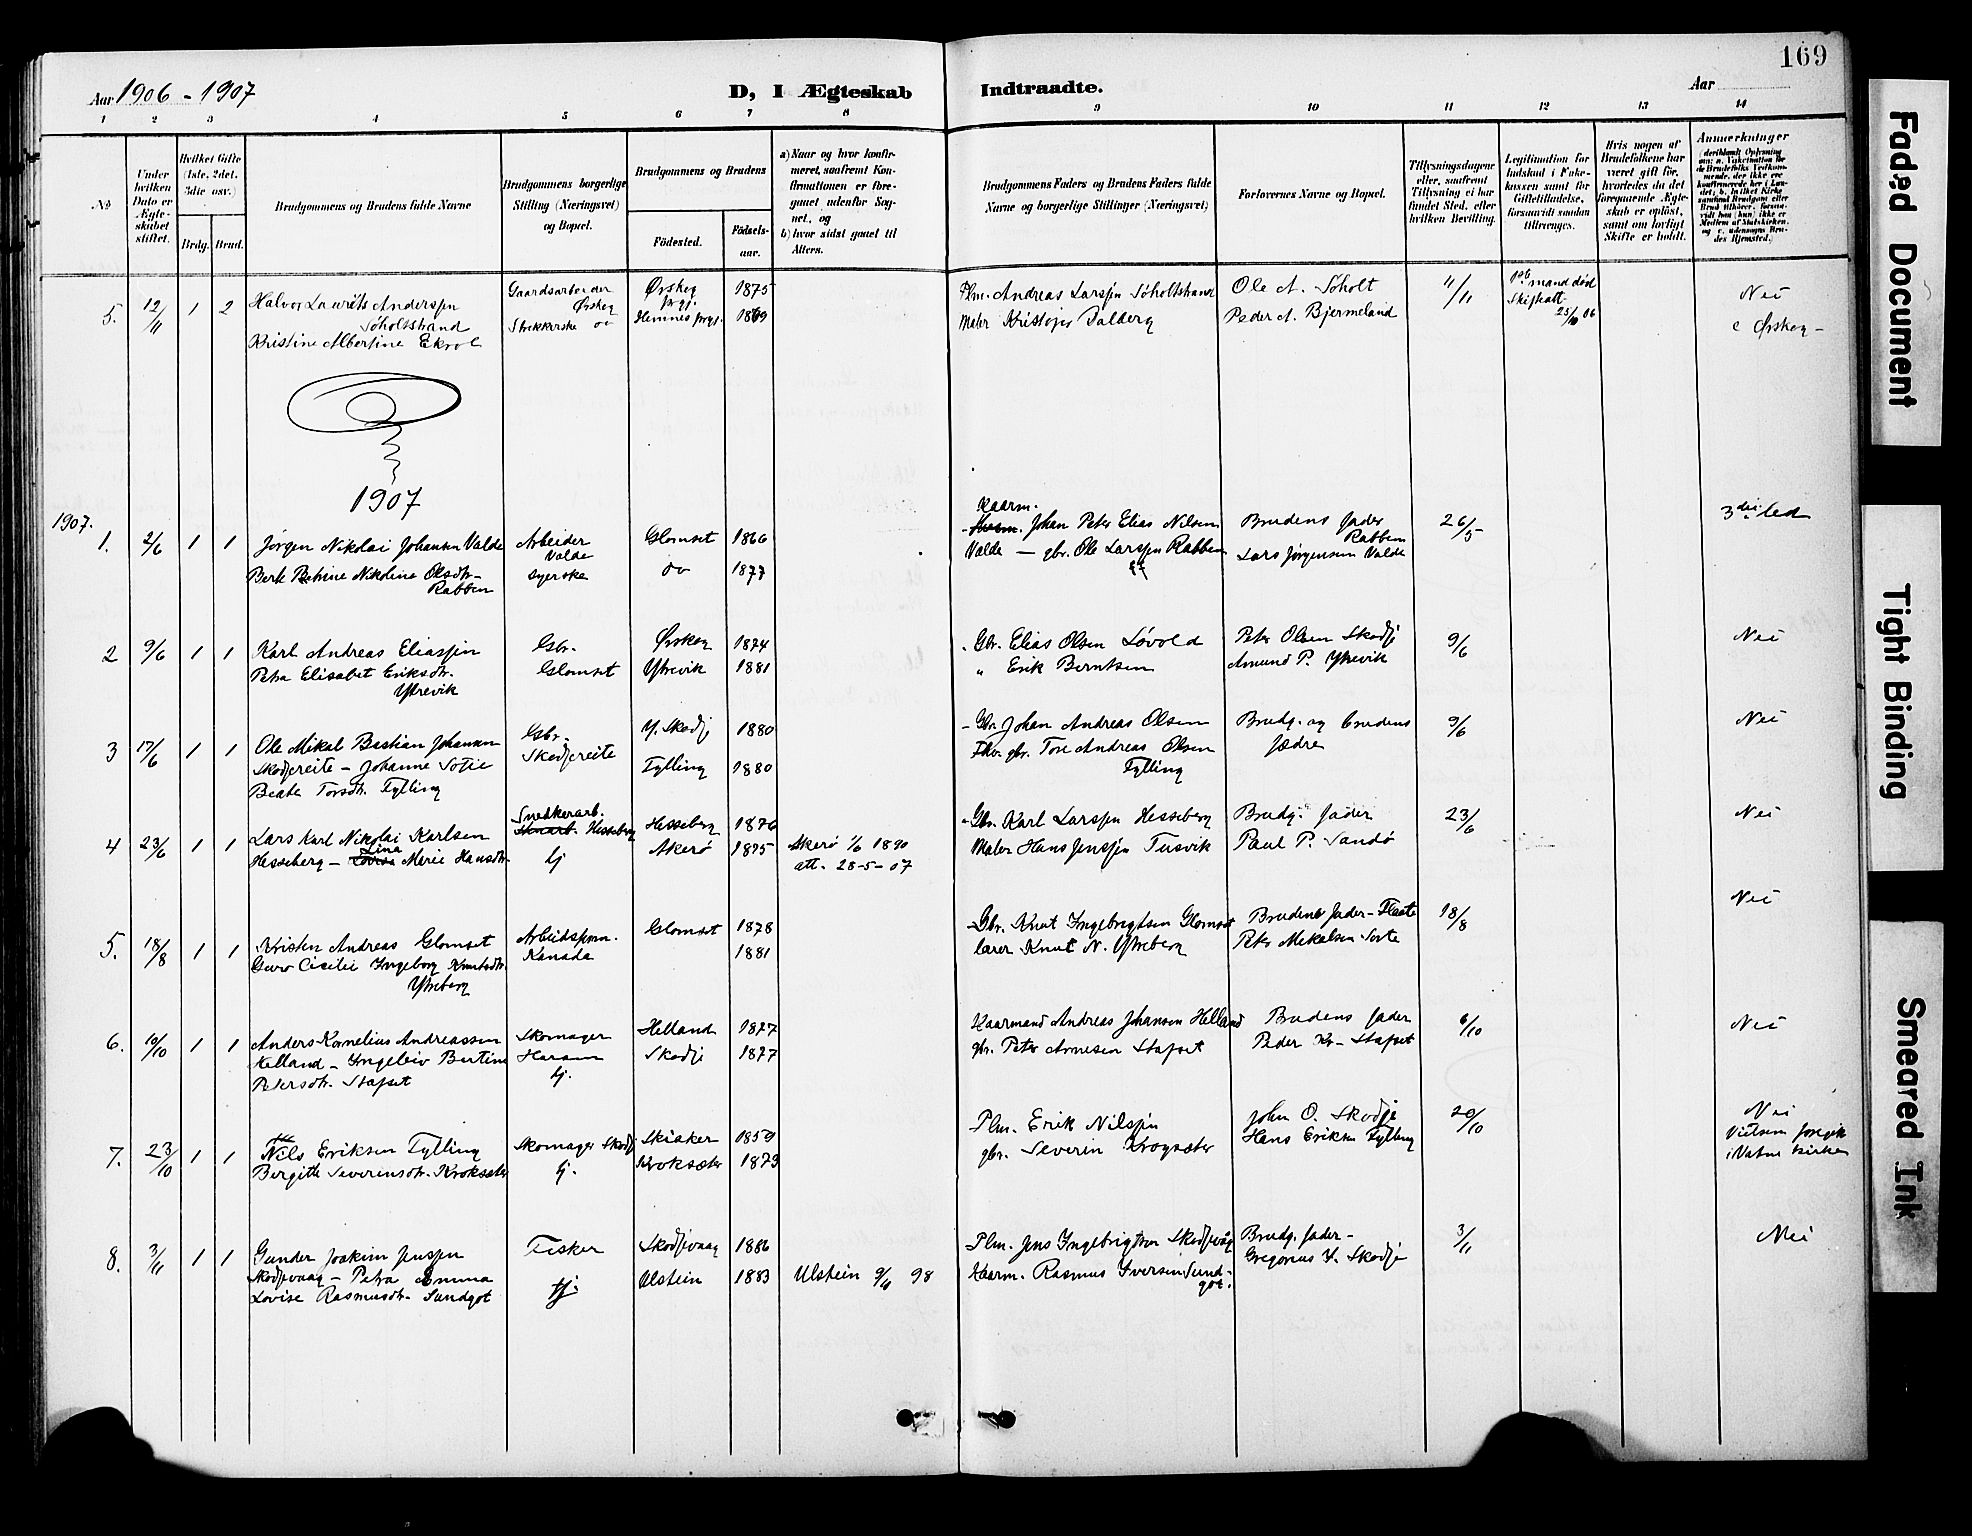 169
Aar 1906 - 1907
D, I Ægteskab Indtraadte.
Aar
1 2 3 4 5 6 7 8 9 10 11 12 13 14
No
Under hvilken Dato er Ægteskabet stiftet.
Hvilket Gifte (1ste, 2det, 3die osv.)
Brdg. Brud.
Brudgommens og Brudens fulde Navne
Brudgommens borgerlige Stilling (Næringsvei) og Bopæl.
Brudgommens og Brudens
Födested.
Födselsaar.
a) Naar og hvor konfirmeret, saafremt Konfirmationen er foregaaet udenfor Sognet, og
b) hvor sidst gaaet til Alters.
Brudgommens Faders og Brudens Faders fulde Navne og borgerlige Stillinger (Næringsvei)
Forlovernes Navne og Bopæl.
Tillysningsdagene eller, saafremt Tillysning ei har fundet Sted, efter hvilken Bevilling.
Legitimation for Indskud i Enkekassen samt for Giftetilladelse, forsaavidt saadan tiltrænges.
Hvis nogen af Brudefolkene har været gift før, hvorledes da det foregaaende Ægteskab er opløst, samt om lovligt Skifte er holdt.
Anmerkninger
5. 12/11 1 2 Halvor Laurits Anderssen Søholtstrand
Kristine Albertine Ekrol
Gaardsarbeider Ørskog
Strikkerske do
Ørskog prgj. 1875
Hemnes prgj. 1869
Plm. Andreas Larssen Søholtstrand
Maler Kristofer Dalberg
Ole A. Søholt
Peder A. Bjermeland
11/11
mand død
Skifteatt.
25/10 06
Nei
c Ørskog -
1907
1907.
1. 2/6 1 1 Jørgen Nikolai Johansen Valde
Berte Petrine Nikoline Olsdtr- Rabben
Arbeider Valde
syerske
Glomset 1866
do 1877
Kaarm.
Johan Peter Elias Nilsen
Valde — gbr. Ole Larssen Rabben
Brudens fader Rabben
Lars Jørgensen Valde
26/5
3die led
2 9/6 1 1 Karl Andreas Eliassen
Petra Elisabet Eriksdtr. Ytrevik
Gbr. Glomset
Ørskog 1874
Ytrevik 1881
Gbr. Elias Olsen Løvold
" Erik Berntsen
Peter Olsen Skodje
Amund P. Ytrevik
9/6
Nei
3 17/6 1 1 Ole Mikal Bastian Johansen
Skodjereite - Johanne Sofie
Beate Torsdtr. Fylling
Gbr. Skodjereite
Y. Skodj 1880
Fylling 1880
- Gbr. Johan Andreas Olsen
gbr. Tore Andreas Olsen Fylling
Brudg. og brudens fædre
9/6
Nei
4 23/6 1 1 Lars Karl Nikolai Karlsen
Hesseberg - Lina Marie Hansdtr.
Snedkerarb. Hesseberg
hj
Hesseberg 1876
Akerø 1875
Akerø 1/6 1890
att. 28-5-07
- Gbr. Karl Larssen Hesseberg
Maler Hans Jenssen Tusvik
Brudg. fader
Paul P. Sandø
23/6
Nei
5. 18/8 1 1 Kristen Andreas Glomset
Guro Cicilie Ingeborg Knutsdtr. Ytreberg
Arbeidsform.
Kanada
Glomset 1878
1881
Gbr. Knut Ingebrigtsen Glomset
lærer Knut N. Ytreberg
Brudens fader - Flaate
Peter Mikalsen Sorte
18/8
Nei
6. 10/10 1 1 Anders Kornelius Andreassen
Helland - Ingeleiv Bertine
Petersdtr. Stafset
Skomager Haram
hj.
Helland 1877
Skodje 1877
Kaarmand Andreas Johansen Helland
gbr. Peter Arnesen Stafset
Brudens fader
Peder Kr- Stafset
6/10
Nei
7. 23/10 1 1 Nils Eriksen Fylling
Birgitte Severinsdtr. Kroksæter
Skomager Skodj
hj.
Skiaker 1859
Kroksæter 1873
Plm. Erik Nilssen
gbr. Severin Krogsæter
John O. Skodje
Hans Eriksen Fylling
20/10
Nei
Vielsen foregik
i Vatne kirke
8. 3/11 1 1 Gunder Joakim Jenssen
Skodjevaag - Petra Emma
Lovise Rasmusdtr. Sundgot
Fisker
hj.
Skodjevaag 1886
Ulstein 1883
Ulstein 9/4 98
Plm. Jens Ingebrigtsen Skodjevåg
Kaarm. Rasmus Iversen Sundgot.
Brudg. fader -
Gregorius I. Skodje
3/11
Nei
Faded Document
Tight Binding
Smeared Ink